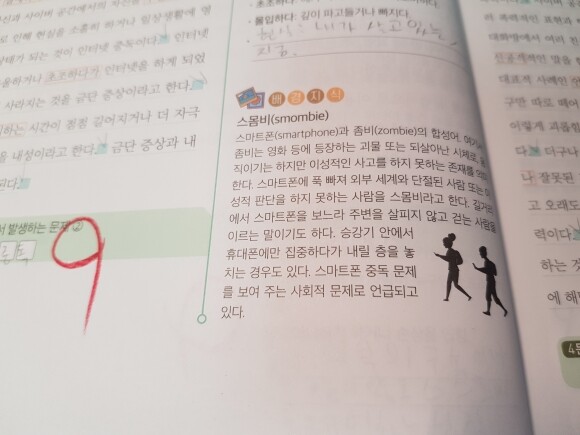 몰입하다: 깊이 파고들거나 빠지다.
현실: 내가 살고 있는
지금.
사이버 공간에서의
로 인해 현실을 소홀히 하거나 일상생활에
상태가 되는 것이 인터넷 중독이다. 인터넷
초조하다가 인터넷을 하게 되었
사라지는 것을 금단 증상이라고 한다.
하는 시간이 점점 길어지거나 더 자극
을 내성이라고 한다. 금단 증상과 내
된다.
서 발생하는 문제 ②
중독
9
배경지식
스몸비(smombie)
스마트폰(smartphone)과 좀비(zombie)의 합성어.
좀비는 영화 등에 등장하는 괴물 또는 되살아난 시체로,
직이기는 하지만 이성적인 사고를 하지 못하는 존재를
한다. 스마트폰에 푹 빠져 외부 세계와 단절된 사람 또는
성적 판단을 하지 못하는 사람을 스몸비라고 한다. 길거리
에서 스마트폰을 보느라 주변을 살피지 않고 걷는 사람을
이르는 말이기도 하다. 승강기 안에서
휴대폰에만 집중하다가 내릴 층을 놓
치는 경우도 있다. 스마트폰 중독 문제
를 보여 주는 사회적 문제로 언급되고
있다.
러 폭력적인
대화방에서 여러
인 말을
대표적 사례인
구만 따로 떼어
이렇게 괴롭힘
다. 더구나
나 잘못된
고 오래도
력이다.
하는 것
에 해
4문